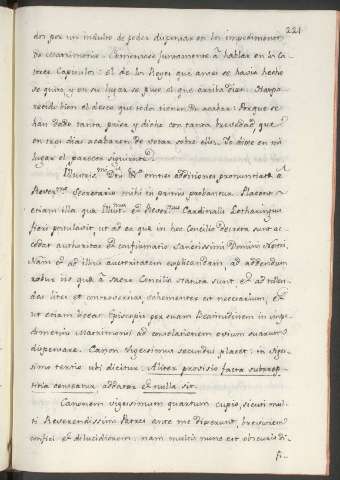 221
dos por un indulto de poder dispensar en los impedimentos
de matrimonio. Començose juntamente à hablar en los ca
trece Capitulos: el de los Reyes que antes se havia hecho
se quitò, y en su lugar se puso el que arriba dixe. Harpa
recido bien el deseo que todos tienen de acabar: Porque se
han dado tanta priesa y dicho con tanta brevedad, que
en tres dias acabaron de votar sobre ellos. Yo dixe en mi
lugar el parecer siguiente.
Illustris.mi DD. omnes additiones pronuntiatæ à
Rever.mo Secretario mihi in primis probantur. Placent
etiam illa quæ Illust.mus et Rever.mus Cardinalis Lotharingus
fieri postulavit, ut ad ea quæ in hoc Concilio decreta sunt ac
cedat authoritas et confirmatio Sanctissimi Domini Nostri,
nam et ad illius auctoritatem explicandam, ad addendum
robur iis quæ à Sacro Concilio statuta sunt et ad tollen
das lites et controversias, vehementer est necessarium, et
ut etiam liceat Episcopis per suam Beatitudinem in impe
dimentis Matrimonii ad consolationem ovium suarum
dispensare. Canon vigesimus secundus placet: in vige
simo tertio ubi dicitur: Aliter provisio facta subrep
titia censeatur, addatur et nulla sit.
Canonem vigesimum quartum cupio, sicuti mul
ti Reverendissimi Patres ante me dixerunt, breviorem
confici et dilucidiorem: nam multis nunc est obscurus di
fi-